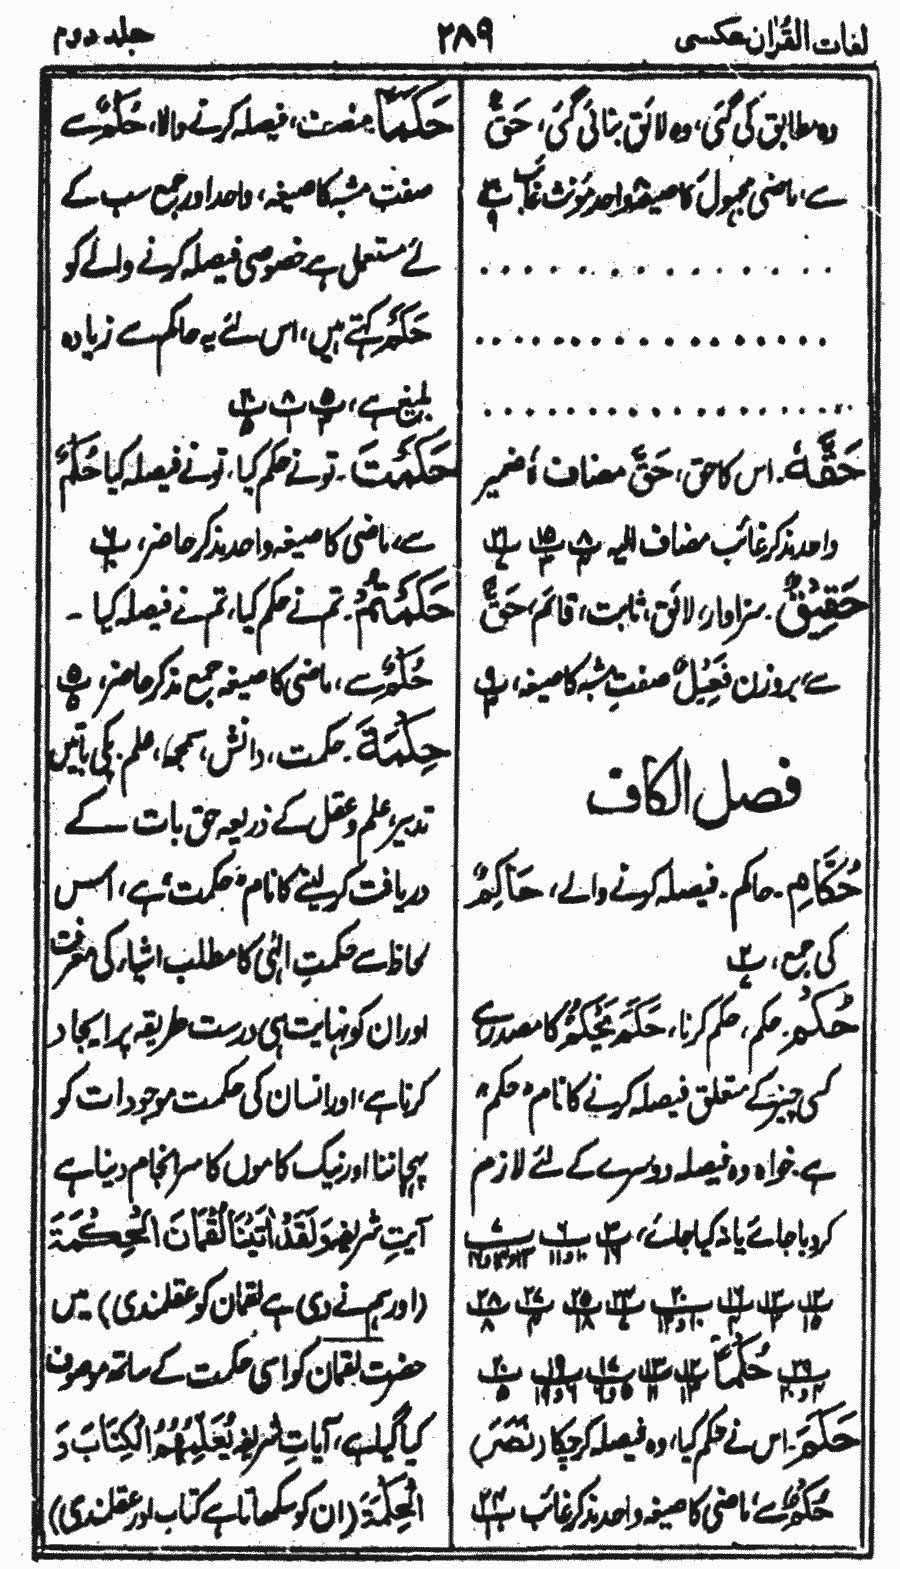 لغات القرآن عکسی
۲۸۹
جلد دوم
وہ مطابق کی گئی، وہ لائق بنائی گئی، حَقٌّ
سے، ماضی مجہول کا صیغہ واحد مونث غائب
حَقَّہٗ۔ اس کا حق، حَقَّ مضاف ہٗ ضمیر
واحد مذکر غائب مضاف الیہ ۸/۴ ۱۵/۳ ۲۱/۷
حَقِیْقٌ۔ سزاوار، لائق، ثابت، قائم، حَقٌّ
سے، بروزن فَعِیْلٌ صفتِ مشبہ کا صیغہ، ۹/۴
فصل الکاف
حُکَّامِ۔ حاکم۔ فیصلہ کرنے والے، حَاکِمٌ
کی جمع، ۲/۷
حُکْمُ۔ حکم، حکم کرنا، حَکَمَ یَحْکُمُ کا مصدر ہے
کسی چیز کے متعلق فیصلہ کرنے کا نام "حکم"
ہے۔ خواہ وہ فیصلہ دوسرے کے لئے لازم
کردیا جائے یا نہ کیا جائے،
حَکَمَ۔ اس نے حکم کیا، وہ فیصلہ کرچکا (نَصَرَ)
حُکْمٌ سے، ماضی کا صیغہ واحد مذکر غائب ۲۴
حَکَمًا۔ منصف، فیصلہ کرنے والا، حُکْمٌ سے
صفت مشبہ کا صیغہ، واحد اور جمع سب کے
لئے مستعمل ہے خصوصی فیصلہ کرنے والے کو
حَکَمٌ کہتے ہیں، اس لئے یہ حاکم سے زیادہ
بلیغ ہے،
حَکَمْتَ۔ تو نے حکم کیا، تو نے فیصلہ کیا حُکْمٌ
سے، ماضی کا صیغہ واحد مذکر حاضر،
حَکَمْتُمْ۔ تم نے حکم کیا، تم نے فیصلہ کیا ۔
حُکْمٌ سے، ماضی کا صیغہ جمع مذکر حاضر، ۵/۵
حِکْمَۃَ۔ حکمت، دانش، سمجھ، علم۔ پکی باتیں
تدبیر، علم و عقل کے ذریعہ حق بات کے
دریافت کر لینے کا نام "حکمت" ہے، اس
لحاظ سے حکمتِ الٰہی کا مطلب اشیاء کی معرفت
اور ان کو نہایت ہی درست طریقہ پر ایجاد
کرنا ہے، اور انسان کی حکمت موجودات کو
پہچاننا اور نیک کاموں کا سرانجام دینا ہے
آیتِ شریفہ وَلَقَدْ اٰتَیْنَا لُقْمَانَ الْحِکْمَۃَ
(اور ہم نے دی ہے لقمان کو عقلمندی) میں
حضرت لقمان کو اسی حکمت کے ساتھ موصوف
کیا گیا ہے، آیاتِ شریفہ یُعَلِّمُہُمُ الْکِتَابَ وَ
الْحِکْمَۃَ (ان کو سکھاتا ہے کتاب اور عقلمندی)